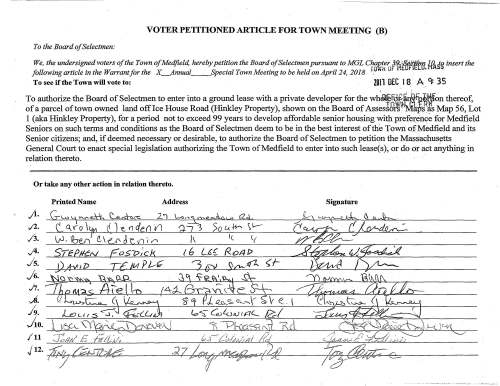 VOTER PETITIONED ARTICLE FOR TOWN MEETING (B)
To the Board of Selectmen:
We, the undersigned voters of the Town of Medfield, hereby petition the Board of Selectmen pursuant to MGL Chapter 39, Section 10, to insert the
TOWN OF MEDFIELD, MASS
following article in the Warrant for the X Annual Special Town Meeting to be held on April 24, 2018.
To see if the Town will vote to:
2017 DEC 18 A 9:35
OFFICE OF THE
TOWN CLERK
To authorize the Board of Selectmen to enter into a ground lease with a private developer for the whole or any portion thereof,
of a parcel of town owned land off Ice House Road (Hinkley Property), shown on the Board of Assessors' Maps as Map 56, Lot
1 (aka Hinkley Property), for a period not to exceed 99 years to develop affordable senior housing with preference for Medfield
Seniors on such terms and conditions as the Board of Selectmen deem to be in the best interest of the Town of Medfield and its
Senior citizens; and, if deemed necessary or desirable, to authorize the Board of Selectmen to petition the Massachusetts
General Court to enact special legislation authorizing the Town of Medfield to enter into such lease(s), or do or act anything in
relation thereto.
Or take any other action in relation thereto.
Printed Name Address Signature
1. Gwynneth Centore 27 Longmeadow Rd. Gwynneth Centore
2. Carolyn Clendenin 273 South St Carolyn Clendenin
3. W. Ben Clendenin " " "
4. STEPHEN FOSDICK 16 LEE ROAD Stephen W Fosdick
5. DAVID TEMPLE South St
6. NORMA BARR Norma Barr
7. Thomas Aiello 142 Granite St Thomas Aiello
8. Christine G Kenney 89 Pleasant St Christine G Kenney
9. Louis J. Fellini 65 Colonial Rd
10. Lisa Donovan Pheasant Rd
11 Joan E. Fellini 65 Colonial Rd Joan E Fellini
12. TONY CENTORE 27 Longmeadow Rd Tony Centore